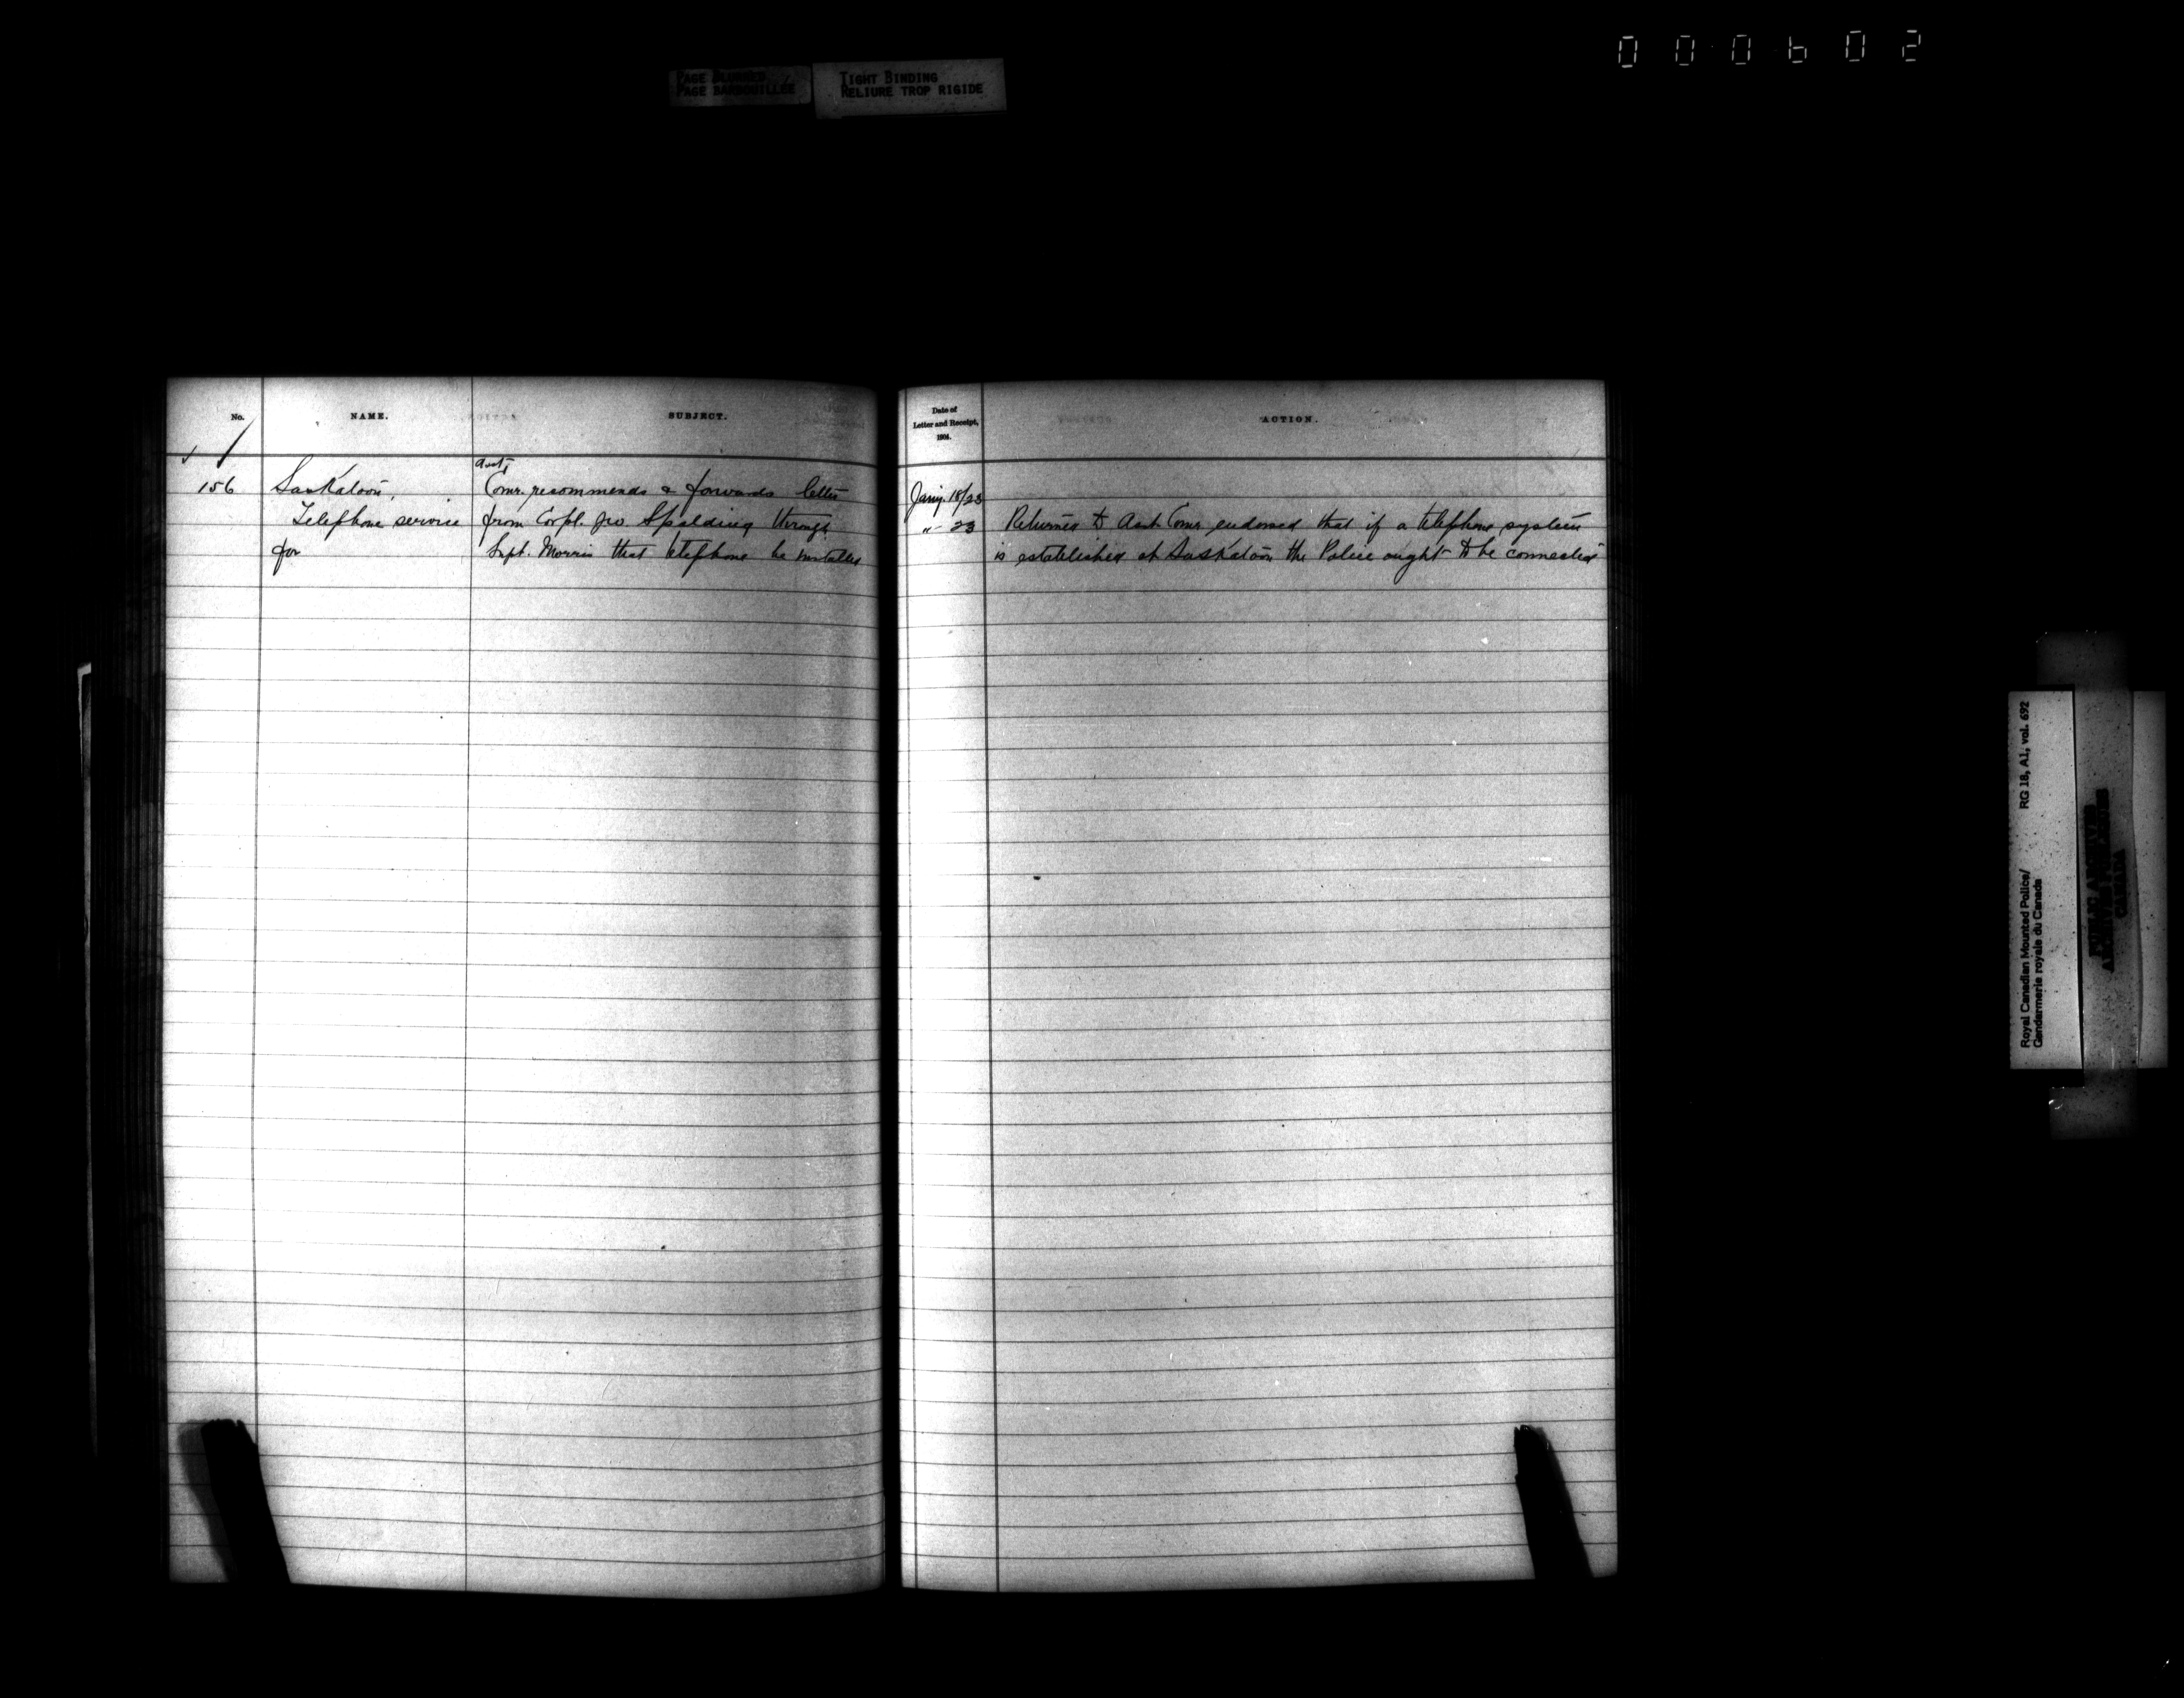 000602
PAGE BLURRED
PAGE BARBOUILLÉE
TIGHT BINDING
RELIURE TROP RIGIDE
No.
NAME.
SUBJECT.
156
Saskatoon,
Telephone service
for
Asst.
Comr. recommends & forwards letter
from Corpl. Jno. Spalding through
Supt. Morris that telephone be installed
Date of
Letter and Receipt,
1904.
ACTION.
Jany. 18/23
" 23
Returned to Asst. Comr. endorsed that if a telephone system
is established at Saskatoon the Police ought to be connected
Royal Canadian Mounted Police/ RG 18, A1, vol. 692
Gendarmerie royale du Canada
PUBLIC ARCHIVES
ARCHIVES PUBLIQUES
CANADA